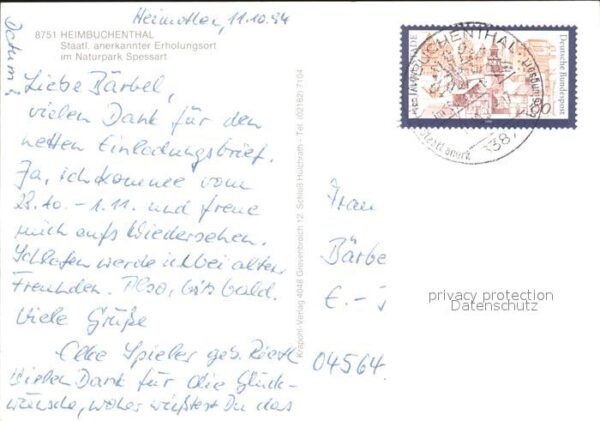 Heimbuchen, 11.10.94
8751 HEIMBUCHENTHAL
Staatl. anerkannter Erholungsort
im Naturpark Spessart
Datum?
Liebe Bärbel,
vielen Dank für den
netten Einladungsbrief.
Ja, ich komme vom
28.10. - 1.11. und freue
mich aufs Wiedersehen.
Schlafen werde ich bei alten
Freunden. Also, bis bald.
Viele Grüße
Elke Spieler geb.
Vielen Dank für die Glück-
wünsche, woher wußtest Du das
Krapohl-Verlag 4048 Grevenbroich 12, Schloß Hülchrath - Tel. (02182) 7104
HEIMBUCHENTHAL
Staatl. anerk
Deutsche Bundespost
60
Frau
Bärbe
04564
privacy protection
Datenschutz